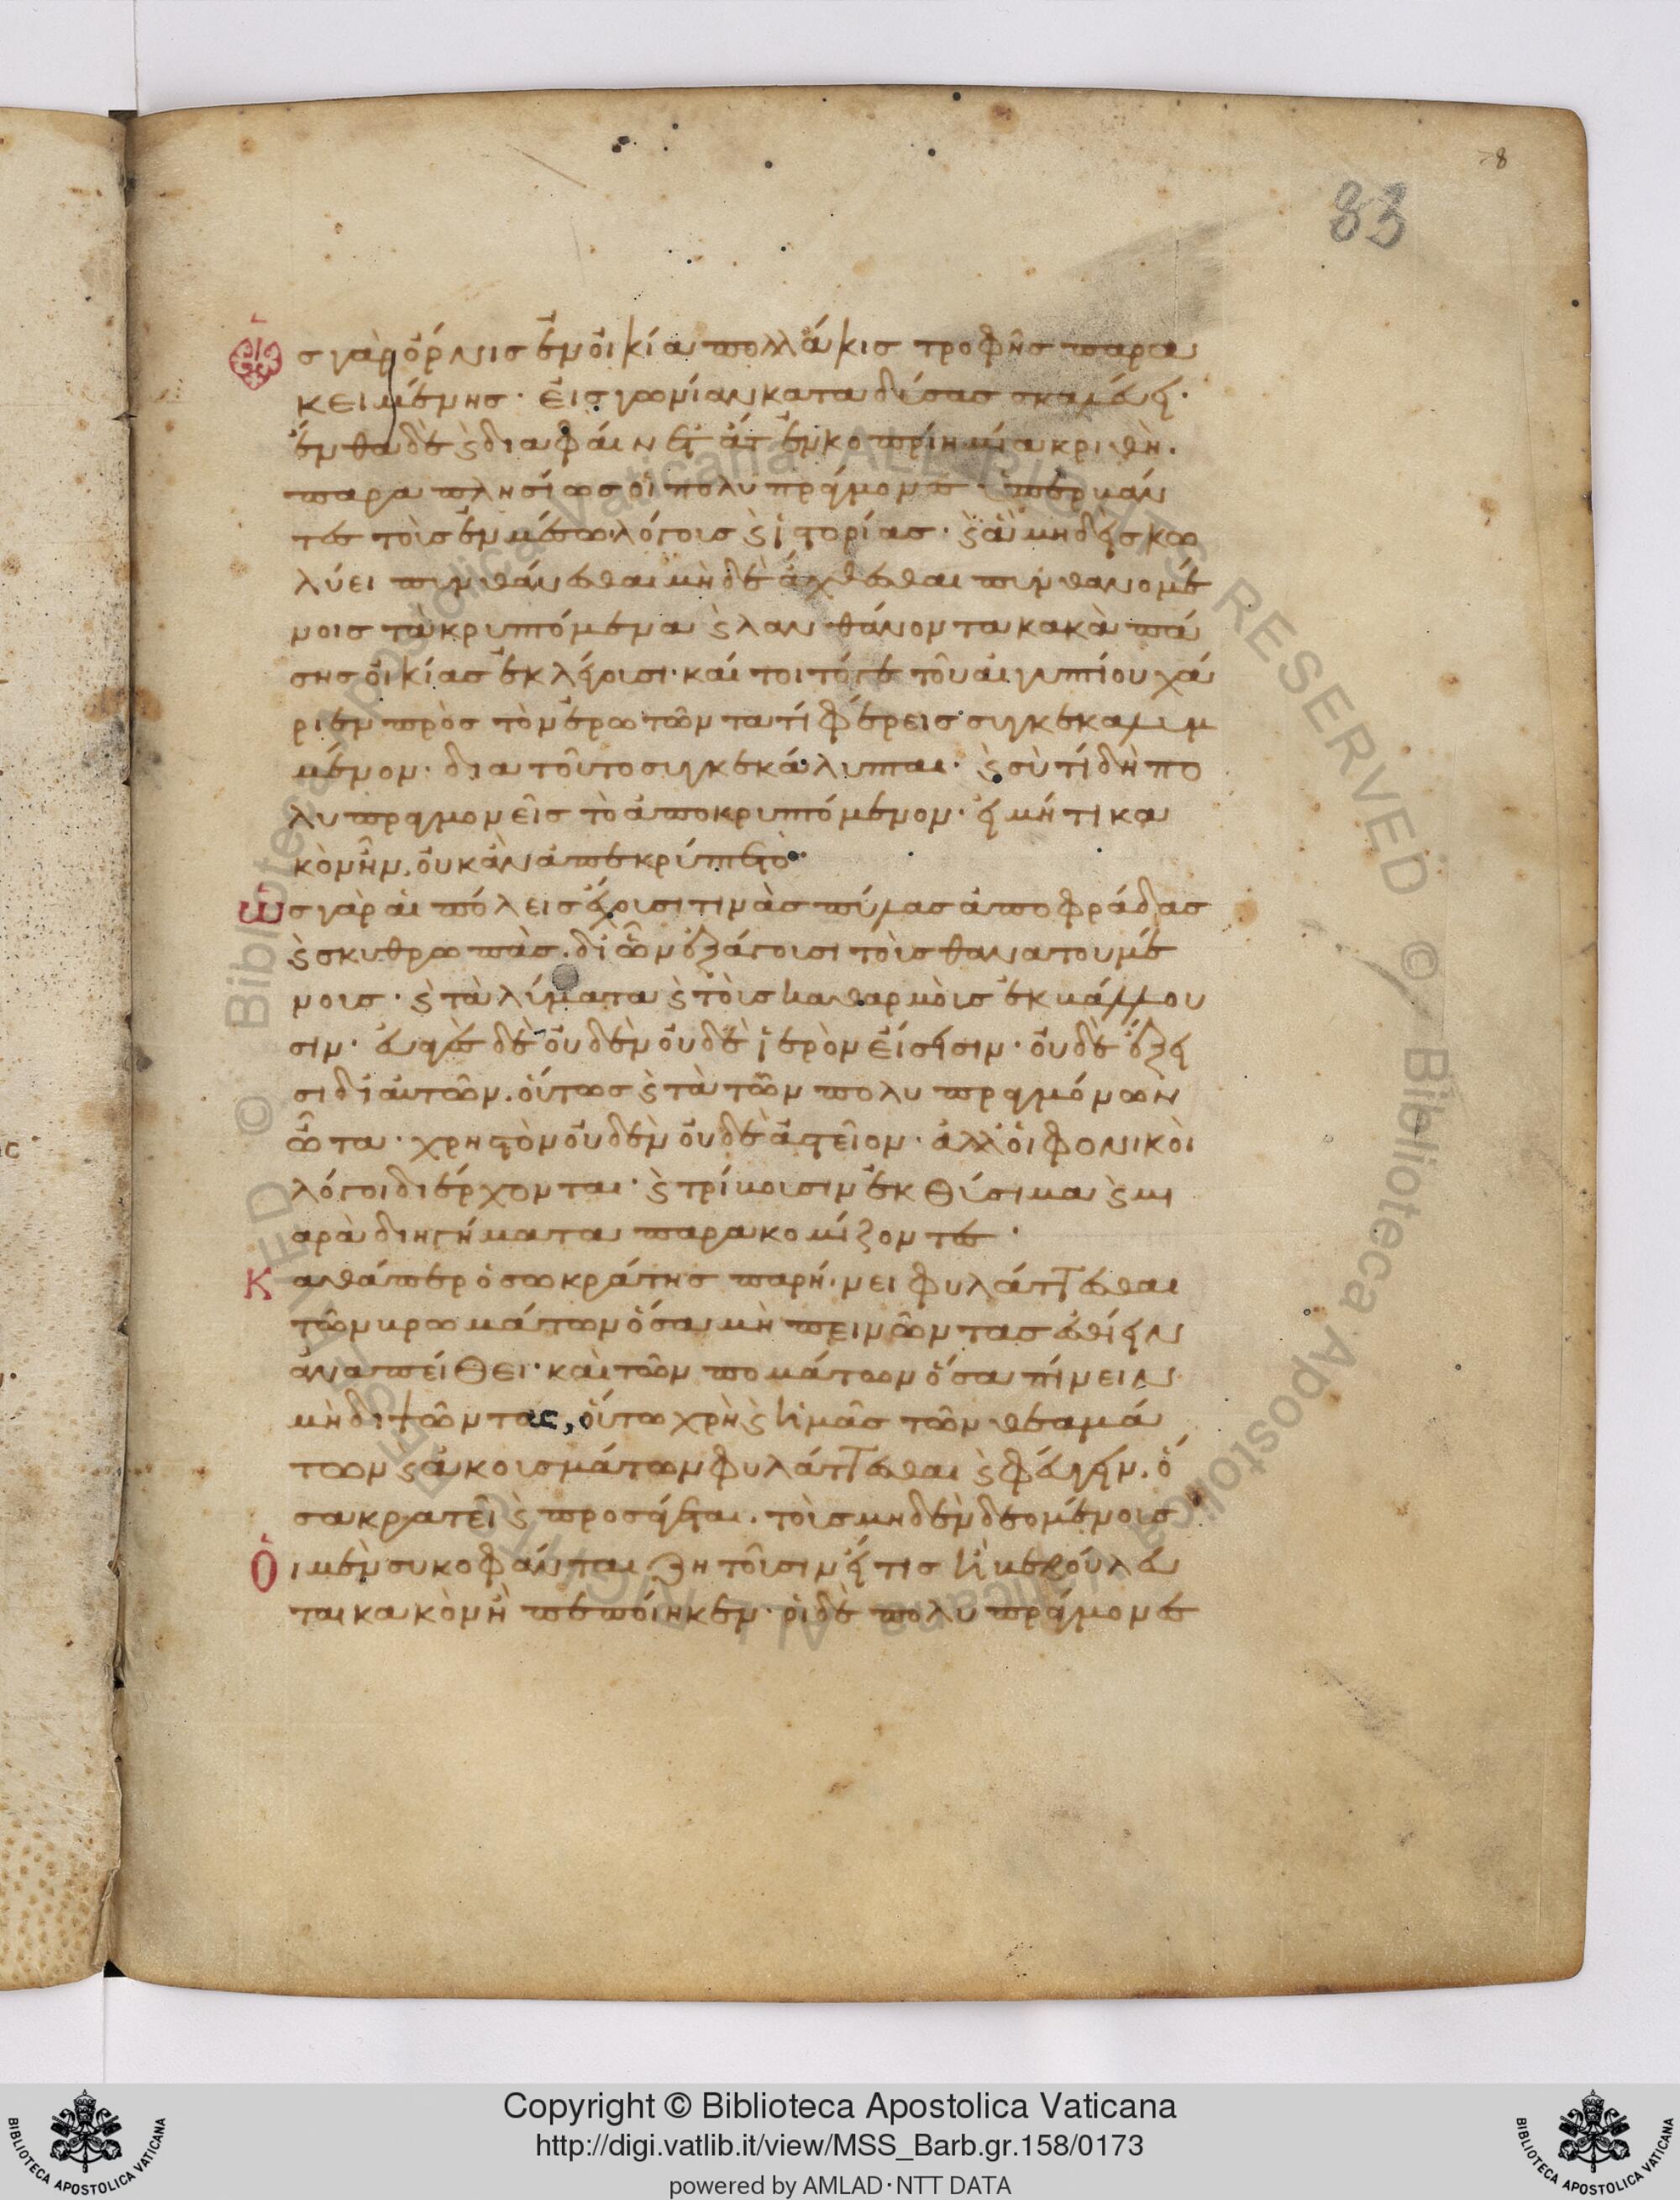 78
83
Ὡς γὰρ ὄρνις ἐν οἰκία πολλάκις τροφῆς παρα
κειμένης· εἰς γωνίαν καταδύσας σκαλεύει·
ἔνθα δὲ ϛ διαφαίνεται ἅτ' ἐν κοπρίη μία κριθή.
παραπλησίως οἱ πολυπράγμονες· ὑπερβάν
τες τοὺς ἐν μέσω λόγους ϛ ἱστορίας· ϛ ἃ μηδεὶς κω
λύει πυνθάνεσθαι μὴ δὲ ἄχθεσθαι πυνθανομέ
νοις τὰ κρυπτόμενα ϛ λανθάνοντα κακὰ πά
σης οἰκίας ἐκλέγουσι· καί τοι τό γε τοῦ αἰγυπτίου χά
ριεν πρὸς τὸν ἐρωτῶντα τί φέρεις συγκεκαλυμ
μένον· δια τοῦτο συγκεκάλυπται· ϛ σὺ τί δὴ πο
λυπραγμονεῖς τὸ ἀποκρυπτόμενον· εἰ μή τι κα
κὸν ἦν, οὐκ ἂν ἀπεκρύπτετο·
Ὡς γὰρ αἱ πόλεις ἔχουσι τινὰς πύλας ἀποφράδας
ϛ σκυθρωπὰς. δι' ὧν ἐξάγουσι τοὺς θανατουμέ
νους· ϛ τὰ λύματα ϛ τοὺς καθαρμοὺς ἐκβάλλου
σιν· εὐαγὲς δὲ οὐδὲν οὐδὲ ἱερὸν εἴσεισιν· οὐδὲ ἔξει
σι δι' αὐτῶν. οὕτως ϛ τὰ τῶν πολυπραγμόνων
ὦτα· χρηστὸν οὐδὲν οὐδὲ ἀστεῖον· ἀλλ' οἱ φονικοὶ
λόγοι διέρχονται· ϛ τρίβουσιν ἐκθύσιμα ϛ μι
αρὰ διηγήματα παρακομίζοντες·
Καθάπερ ὁ σωκράτης παρήνει φυλάττεσθαι
τῶν βρωμάτων ὅσα μὴ πεινῶντας ἐσθίειν
ἀναπείθει· καὶ τῶν πομάτων ὅσα πίνειν
μὴ διψῶντας, οὕτω χρὴ ϛ ἡμᾶς τῶν θεαμά
των ϛ ἀκουσμάτων φυλάττεσθαι ϛ φεύγειν. ὅ
σα κρατεῖ ϛ προσάγεται. τοὺς μηδὲν δεομένους
Οἱ μὲν συκοφάνται ζητοῦσιν εἴ τις ἢ βεβούλευ
ται κακὸν ἢ πεποίηκεν· οἱ δὲ πολυπράγμονες
Copyright © Biblioteca Apostolica Vaticana
http://digi.vatlib.it/view/MSS_Barb.gr.158/0173
powered by AMLAD·NTT DATA